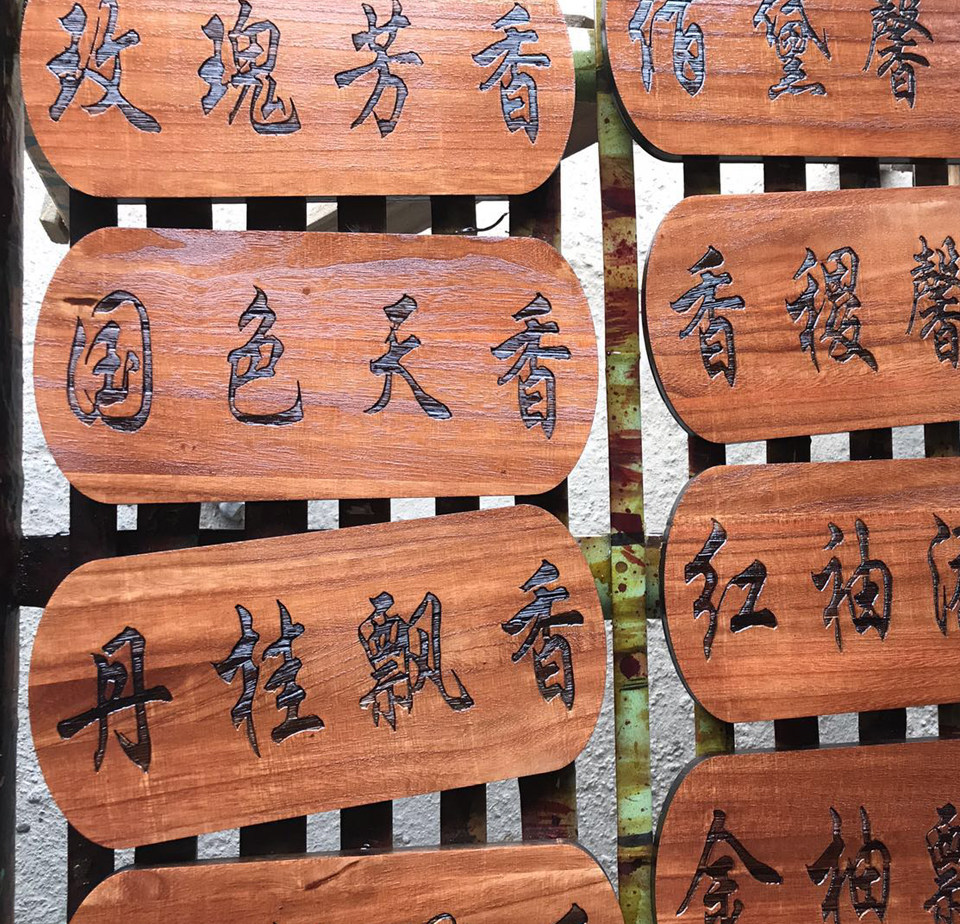 玫瑰芳香
国色天香
丹桂飘香
黛馨
香稷馨
红袖
金袖飘